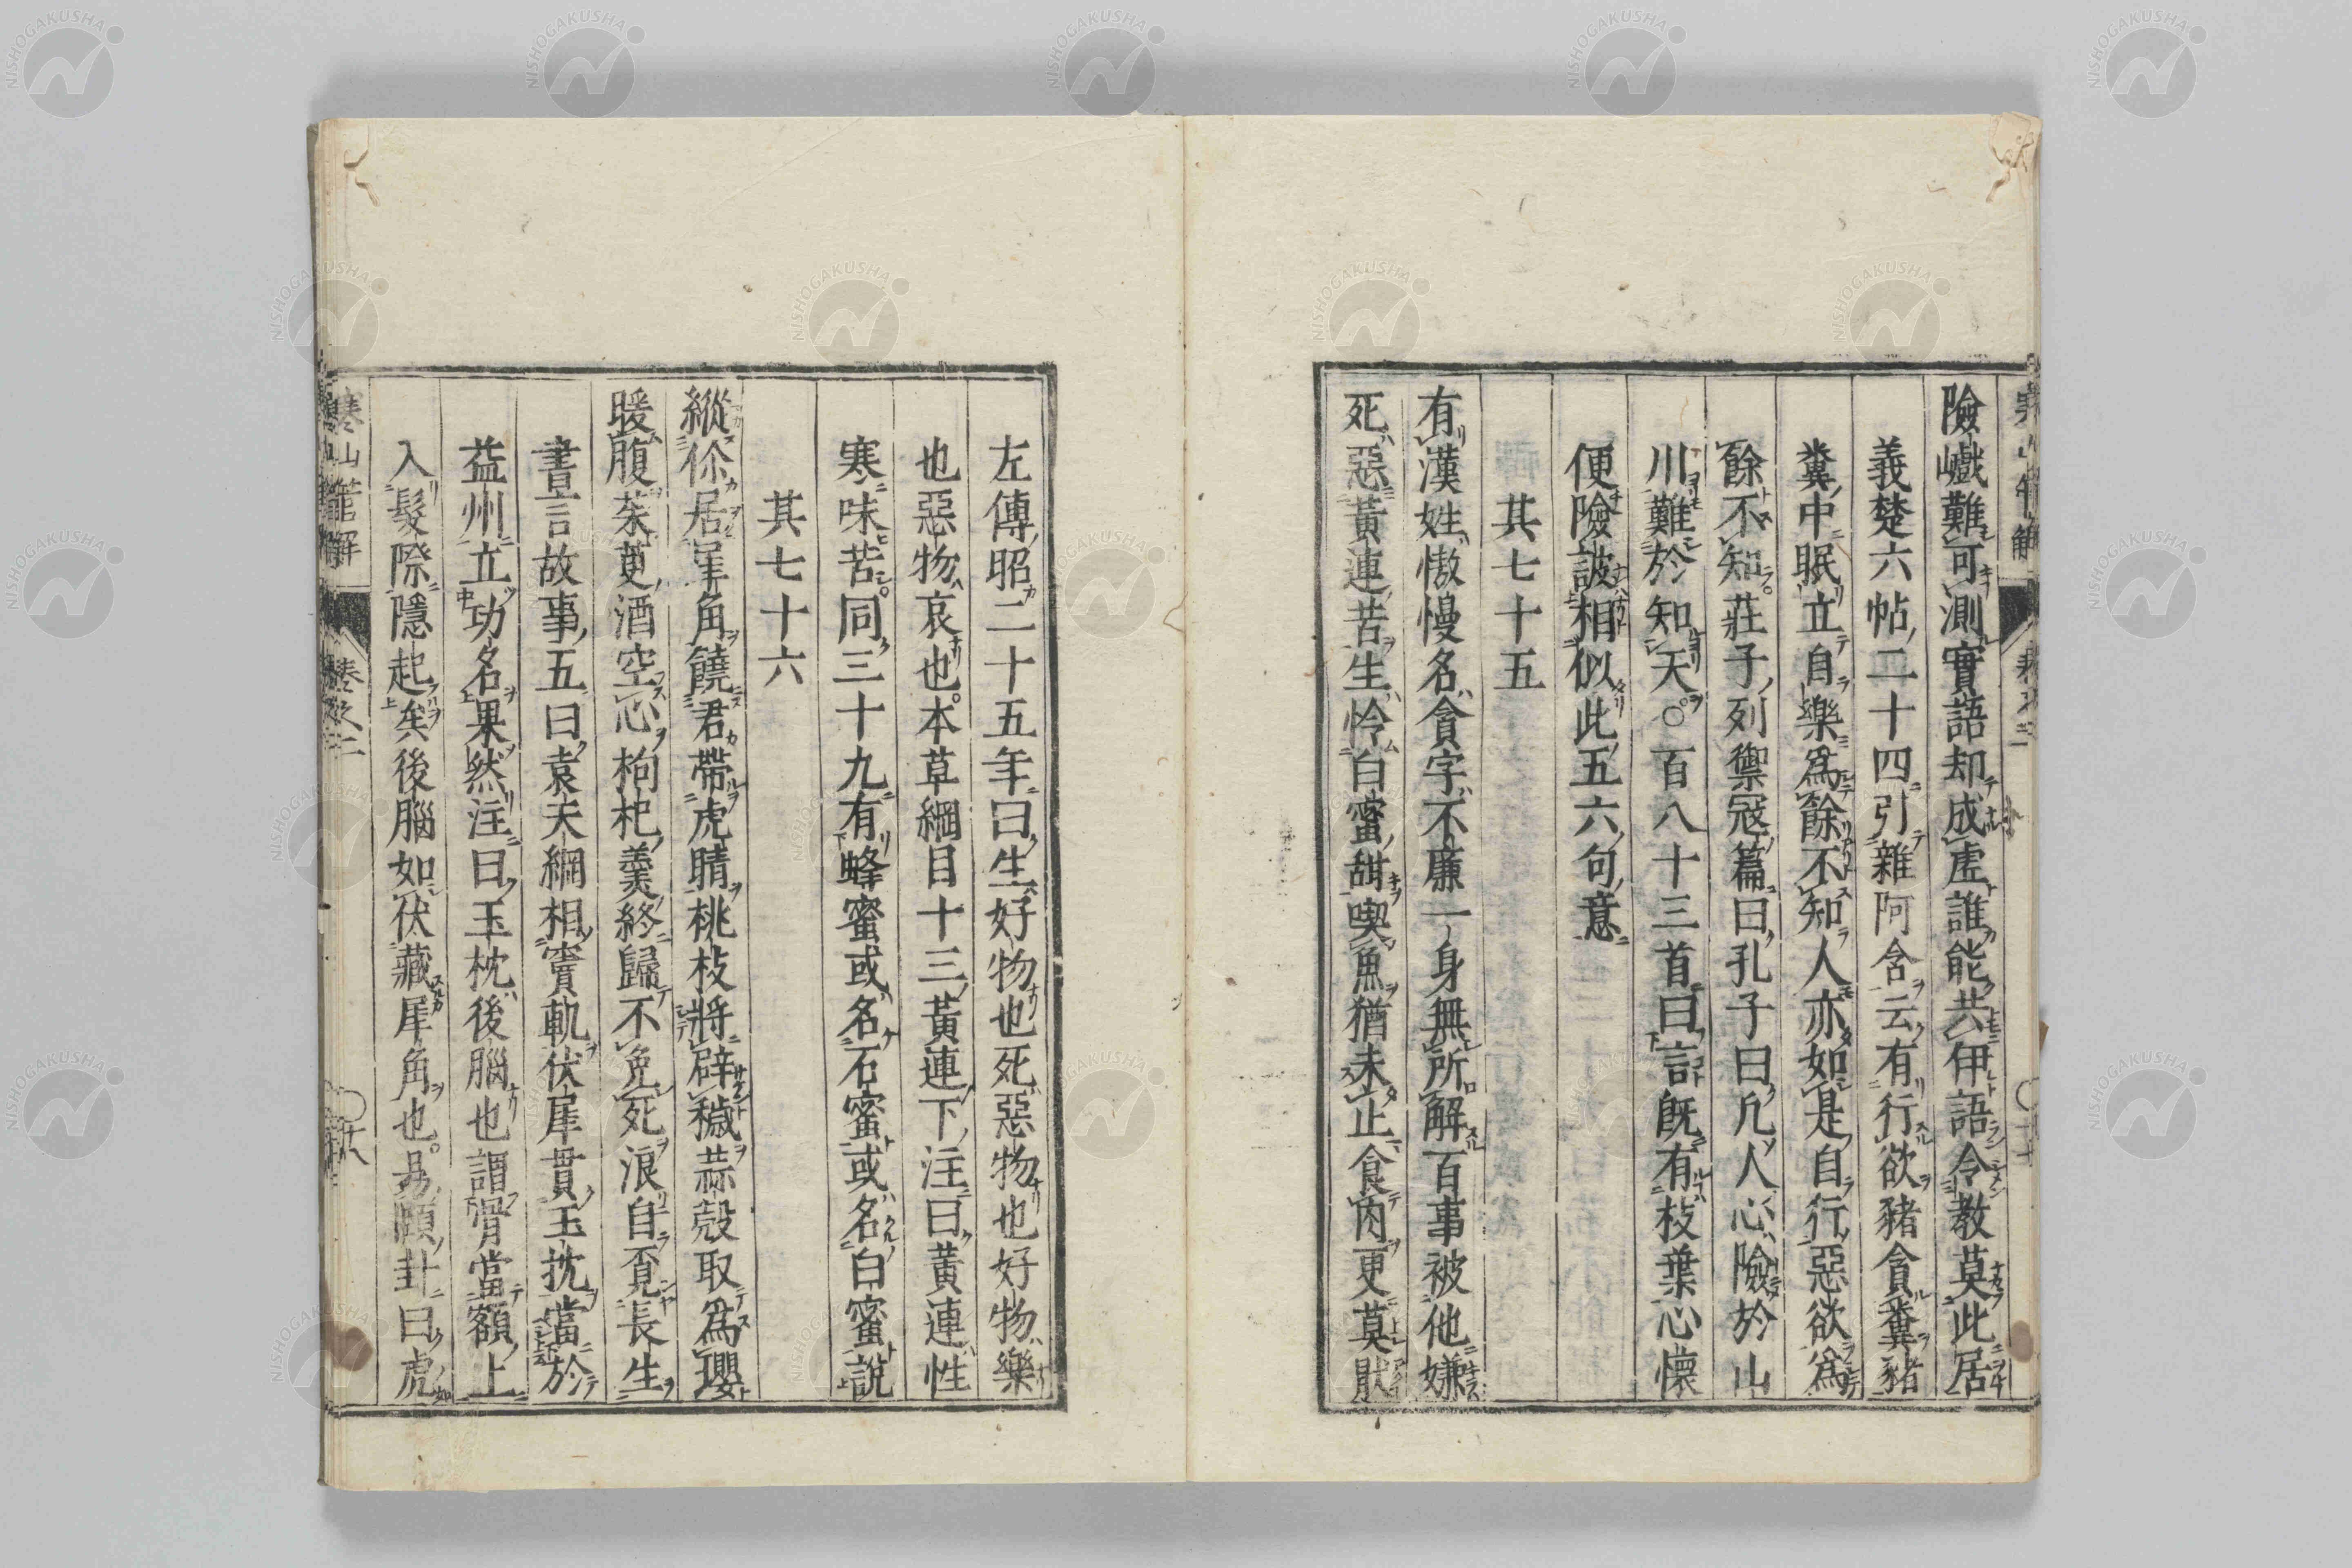 險巇難可測實語却成虛誰能共伊語令教莫此居
義楚六帖二十四引雜阿含云有行欲豬貪糞豬
糞中眠立自樂爲餘不知人亦如是自行惡欲爲
餘不知莊子列禦寇篇曰孔子曰凡人心險於山
川難於知天○百八十三首曰言既有枝葉心懷
便險詖相似此五六句意
其七十五
有漢姓傲慢名貪字不廉一身無所解百事被他嫌
死惡黃連苦生怜白蜜甜喫魚猶未止食肉更莫猒
左傳昭二十五年曰生好物也死惡物也好物樂
也惡物哀也本草綱目十三黃連下注曰黃連性
寒味苦同三十九有蜂蜜或名石蜜或名白蜜說
其七十六
縱你居犀角饒君帶虎睛桃枝將辟穢蒜殼取爲瓔
暖腹茱萸酒空心枸杞羹終歸不免死浪自覓長生
書言故事五曰袁天綱相竇軌伏犀貫玉枕當於
益州立功名果然注曰玉枕後腦也謂骨當額上
入髮際隱起矣後腦如伏藏犀角也易頤卦曰虎
寒山詩管解
卷之二
十八